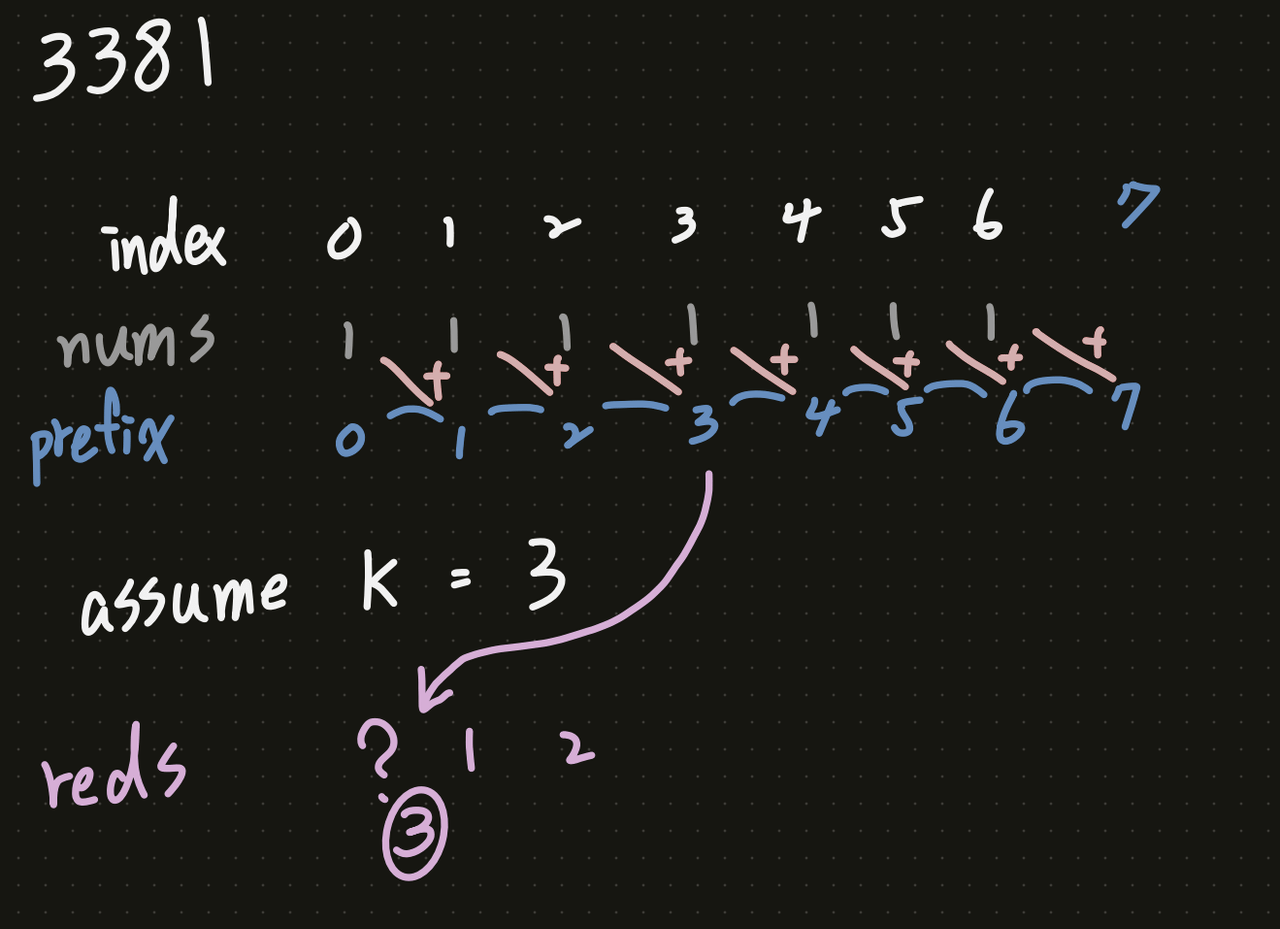 3381
index 0 1 2 3 4 5 6 7
nums 1 1 1 1 1 1 1
+ + + + + + +
prefix 0 1 2 3 4 5 6 7
assume k = 3
reds ? 1 2
3